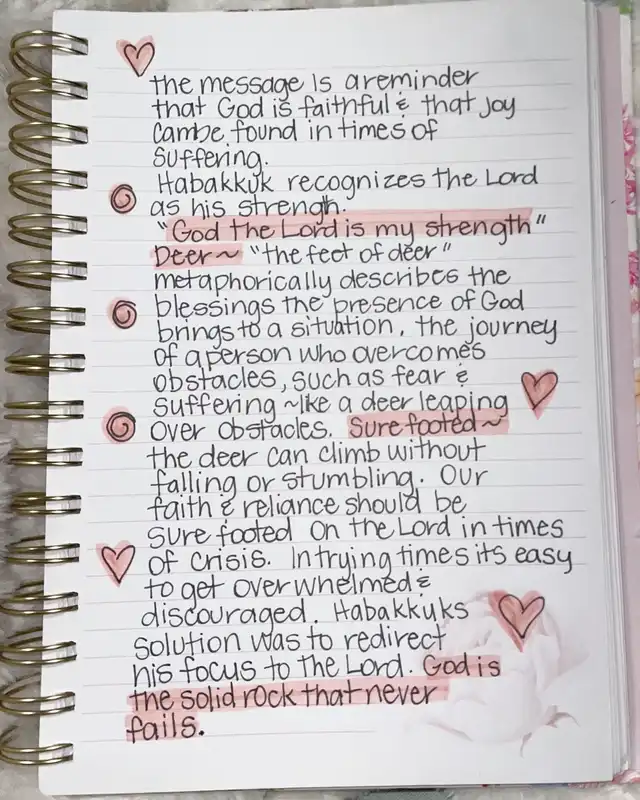 the message is a reminder
that God is faithful & that joy
can be found in times of
suffering.
Habakkuk recognizes the Lord
as his strength.
"God the Lord is my strength"
Deer~ "the feet of deer"
metaphorically describes the
blessings the presence of God
brings to a situation, the journey
of a person who overcomes
obstacles, such as fear &
suffering ~like a deer leaping
over obstacles. Sure footed~
the deer can climb without
falling or stumbling. Our
faith & reliance should be
sure footed on the Lord in times
of crisis. In trying times its easy
to get overwhelmed &
discouraged. Habakkuks
solution was to redirect
his focus to the Lord. God is
the solid rock that never
fails.